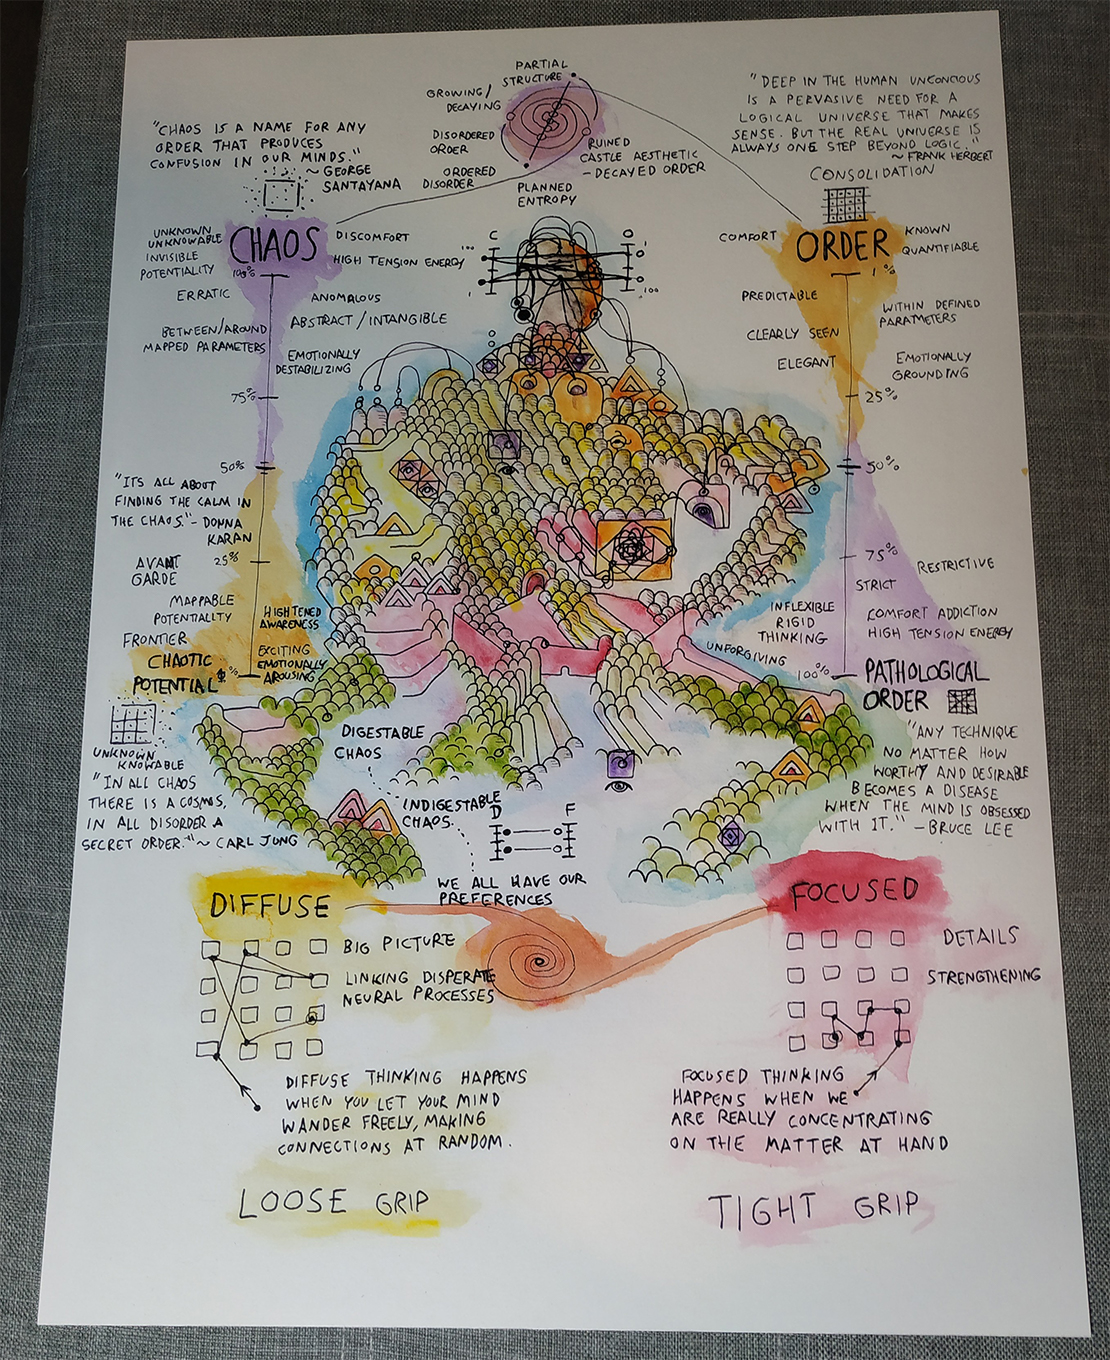 PARTIAL
STRUCTURE
GROWING/
DECAYING
DISORDERED
ORDER
ORDERED
DISORDER
RUINED
CASTLE AESTHETIC
- DECAYED ORDER
PLANNED
ENTROPY
"CHAOS IS A NAME FOR ANY
ORDER THAT PRODUCES
CONFUSION IN OUR MINDS."
~ GEORGE
SANTAYANA
"DEEP IN THE HUMAN UNCONCIOUS
IS A PERVASIVE NEED FOR A
LOGICAL UNIVERSE THAT MAKES
SENSE. BUT THE REAL UNIVERSE IS
ALWAYS ONE STEP BEYOND LOGIC."
~ FRANK HERBERT
CONSOLIDATION
UNKNOWN
UNKNOWABLE
INVISIBLE
POTENTIALITY
CHAOS
DISCOMFORT
HIGH TENSION ENERGY
100%
ERRATIC
ANOMALOUS
ABSTRACT / INTANGIBLE
BETWEEN/AROUND
MAPPED PARAMETERS
EMOTIONALLY
DESTABILIZING
75%
50%
C
O
100
1
1
100
COMFORT
ORDER
KNOWN
QUANTIFIABLE
1%
PREDICTABLE
WITHIN DEFINED
PARAMETERS
CLEARLY SEEN
ELEGANT
EMOTIONALLY
GROUNDING
25%
50%
"ITS ALL ABOUT
FINDING THE CALM IN
THE CHAOS." - DONNA
KARAN
AVANT
GARDE
25%
MAPPABLE
POTENTIALITY
HIGHTENED
AWARENESS
FRONTIER
EXCITING
EMOTIONALLY
AROUSING
CHAOTIC
POTENTIAL
%
UNKNOWN
KNOWABLE
"IN ALL CHAOS
THERE IS A COSMOS,
IN ALL DISORDER A
SECRET ORDER." ~ CARL JUNG
75%
RESTRICTIVE
STRICT
INFLEXIBLE
RIGID
THINKING
COMFORT ADDICTION
HIGH TENSION ENERGY
UNFORGIVING
100%
PATHOLOGICAL
ORDER
"ANY TECHNIQUE
NO MATTER HOW
WORTHY AND DESIRABLE
BECOMES A DISEASE
WHEN THE MIND IS OBSESSED
WITH IT." - BRUCE LEE
DIGESTABLE
CHAOS
INDIGESTABLE
CHAOS
D
F
WE ALL HAVE OUR
PREFERENCES
DIFFUSE
BIG PICTURE
LINKING DISPERATE
NEURAL PROCESSES
DIFFUSE THINKING HAPPENS
WHEN YOU LET YOUR MIND
WANDER FREELY, MAKING
CONNECTIONS AT RANDOM.
LOOSE GRIP
FOCUSED
DETAILS
STRENGTHENING
FOCUSED THINKING
HAPPENS WHEN WE
ARE REALLY CONCENTRATING
ON THE MATTER AT HAND
TIGHT GRIP